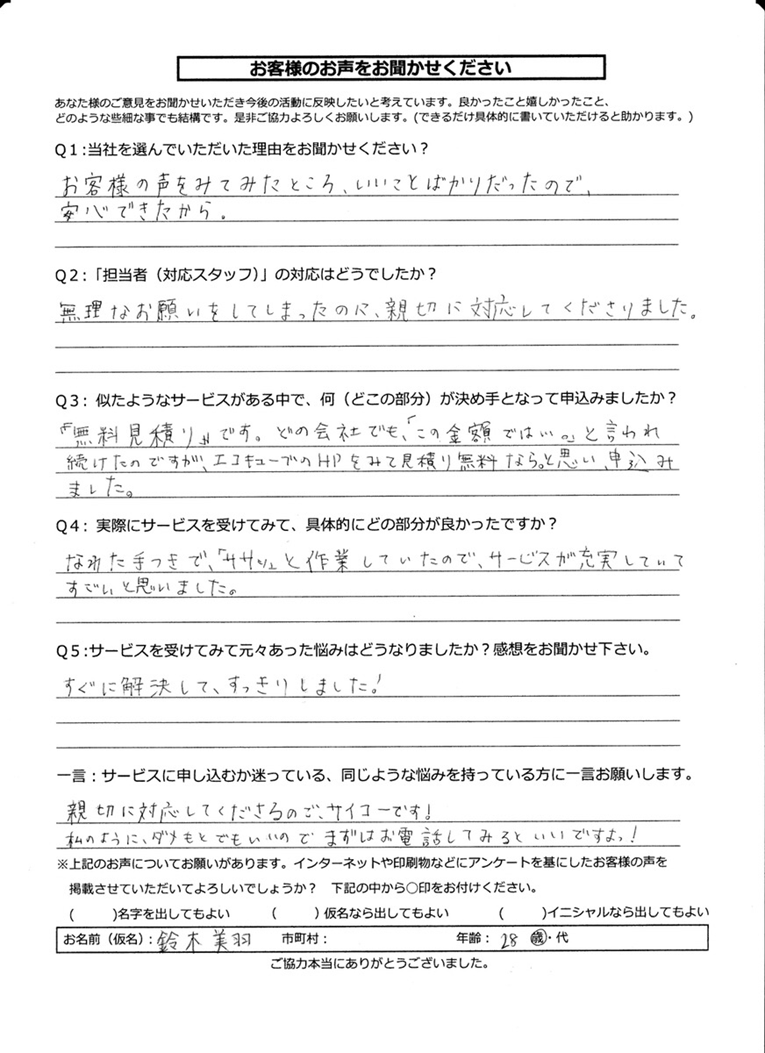 お客様のお声をお聞かせください
あなた様のご意見をお聞かせいただき今後の活動に反映したいと考えています。良かったこと嬉しかったこと、
どのような些細な事でも結構です。是非ご協力よろしくお願いします。(できるだけ具体的に書いていただけると助かります。)
Q1:当社を選んでいただいた理由をお聞かせください？
お客様の声をみてみたところ、いいことばかりだったので、
安心できたから。
Q2:「担当者（対応スタッフ）」の対応はどうでしたか？
無理なお願いをしてしまったのに、親切に対応してくださりました。
Q3: 似たようなサービスがある中で、何（どこの部分）が決め手となって申込みましたか？
『無料見積り』です。どの会社でも、「この金額では…。」と言われ
続けたのですが、エコキューブのHPをみて見積り無料なら。と思い、申込み
ました。
Q4: 実際にサービスを受けてみて、具体的にどの部分が良かったですか？
なれた手つきで、「ササッ」と作業していたので、サービスが充実していて
すごいと思いました。
Q5:サービスを受けてみて元々あった悩みはどうなりましたか？感想をお聞かせ下さい。
すぐに解決して、すっきりしました!
一言：サービスに申し込むか迷っている、同じような悩みを持っている方に一言お願いします。
親切に対応してくださるので、サイコーです!
私のように、ダメもとでもいいので まずはお電話してみるといいですよっ!
※上記のお声についてお願いがあります。インターネットや印刷物などにアンケートを基にしたお客様の声を
掲載させていただいてよろしいでしょうか？ 下記の中から○印をお付けください。
( )名字を出してもよい ( )仮名なら出してもよい ( )イニシャルなら出してもよい
お名前（仮名）：鈴木美羽 市町村： 年齢： 28 歳・代
ご協力本当にありがとうございました。